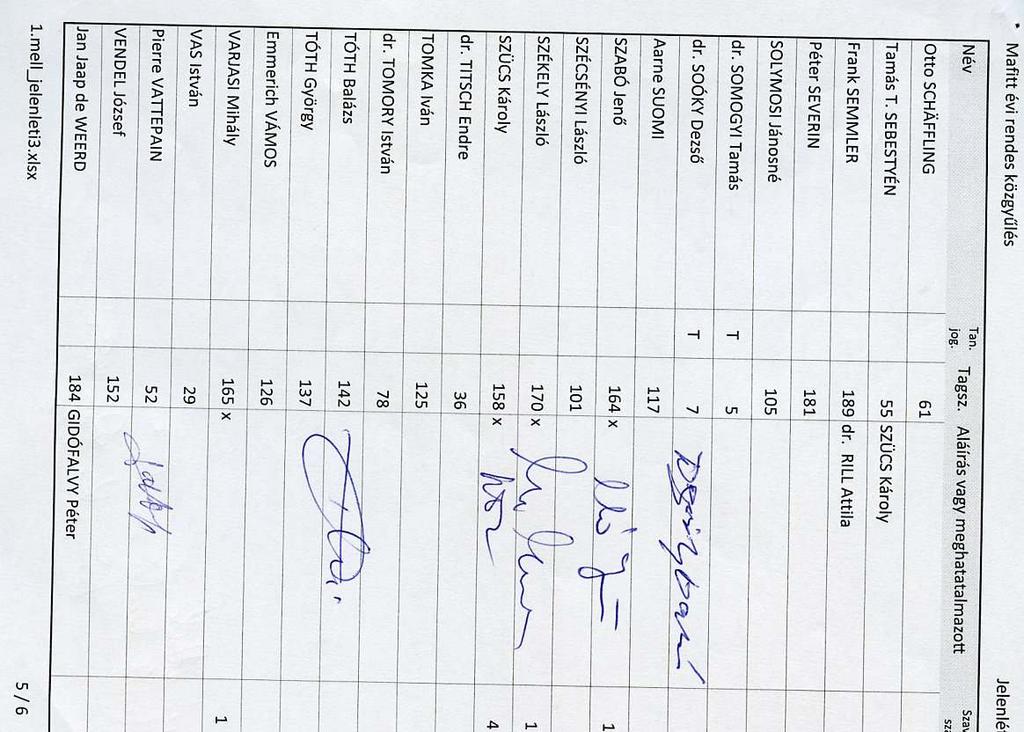 Mafitt évi rendes közgyűlés Jelenlét
Név Tan. jog. Tagsz. Aláírás vagy meghatatalmazott Szav szá
Otto SCHÄFFLING 61
Tamás T. SEBESTYÉN 55 SZÜCS Károly
Frank SEMMLER 189 dr. RILL Attila
Péter SEVERIN 181
SOLYMOSI Jánosné 105
dr. SOMOGYI Tamás T 5
dr. SOÓKY Dezső T 7
Aarne SUOMI 117
SZABÓ Jenő 164 x 1
SZÉCSÉNYI László 101
SZÉKELY László 170 x 1
SZÜCS Károly 158 x 4
dr. TITSCH Endre 36
TOMKA Iván 125
dr. TOMORY István 78
TÓTH Balázs 142
TÓTH György 137
Emmerich VÁMOS 126
VARJASI Mihály 165 x 1
VAS István 29
Pierre VATTEPAIN 52
VENDEL József 152
Jan Jaap de WEERD 184 GIDÓFALVY Péter
1.mell_jelenleti3.xlsx 5 / 6